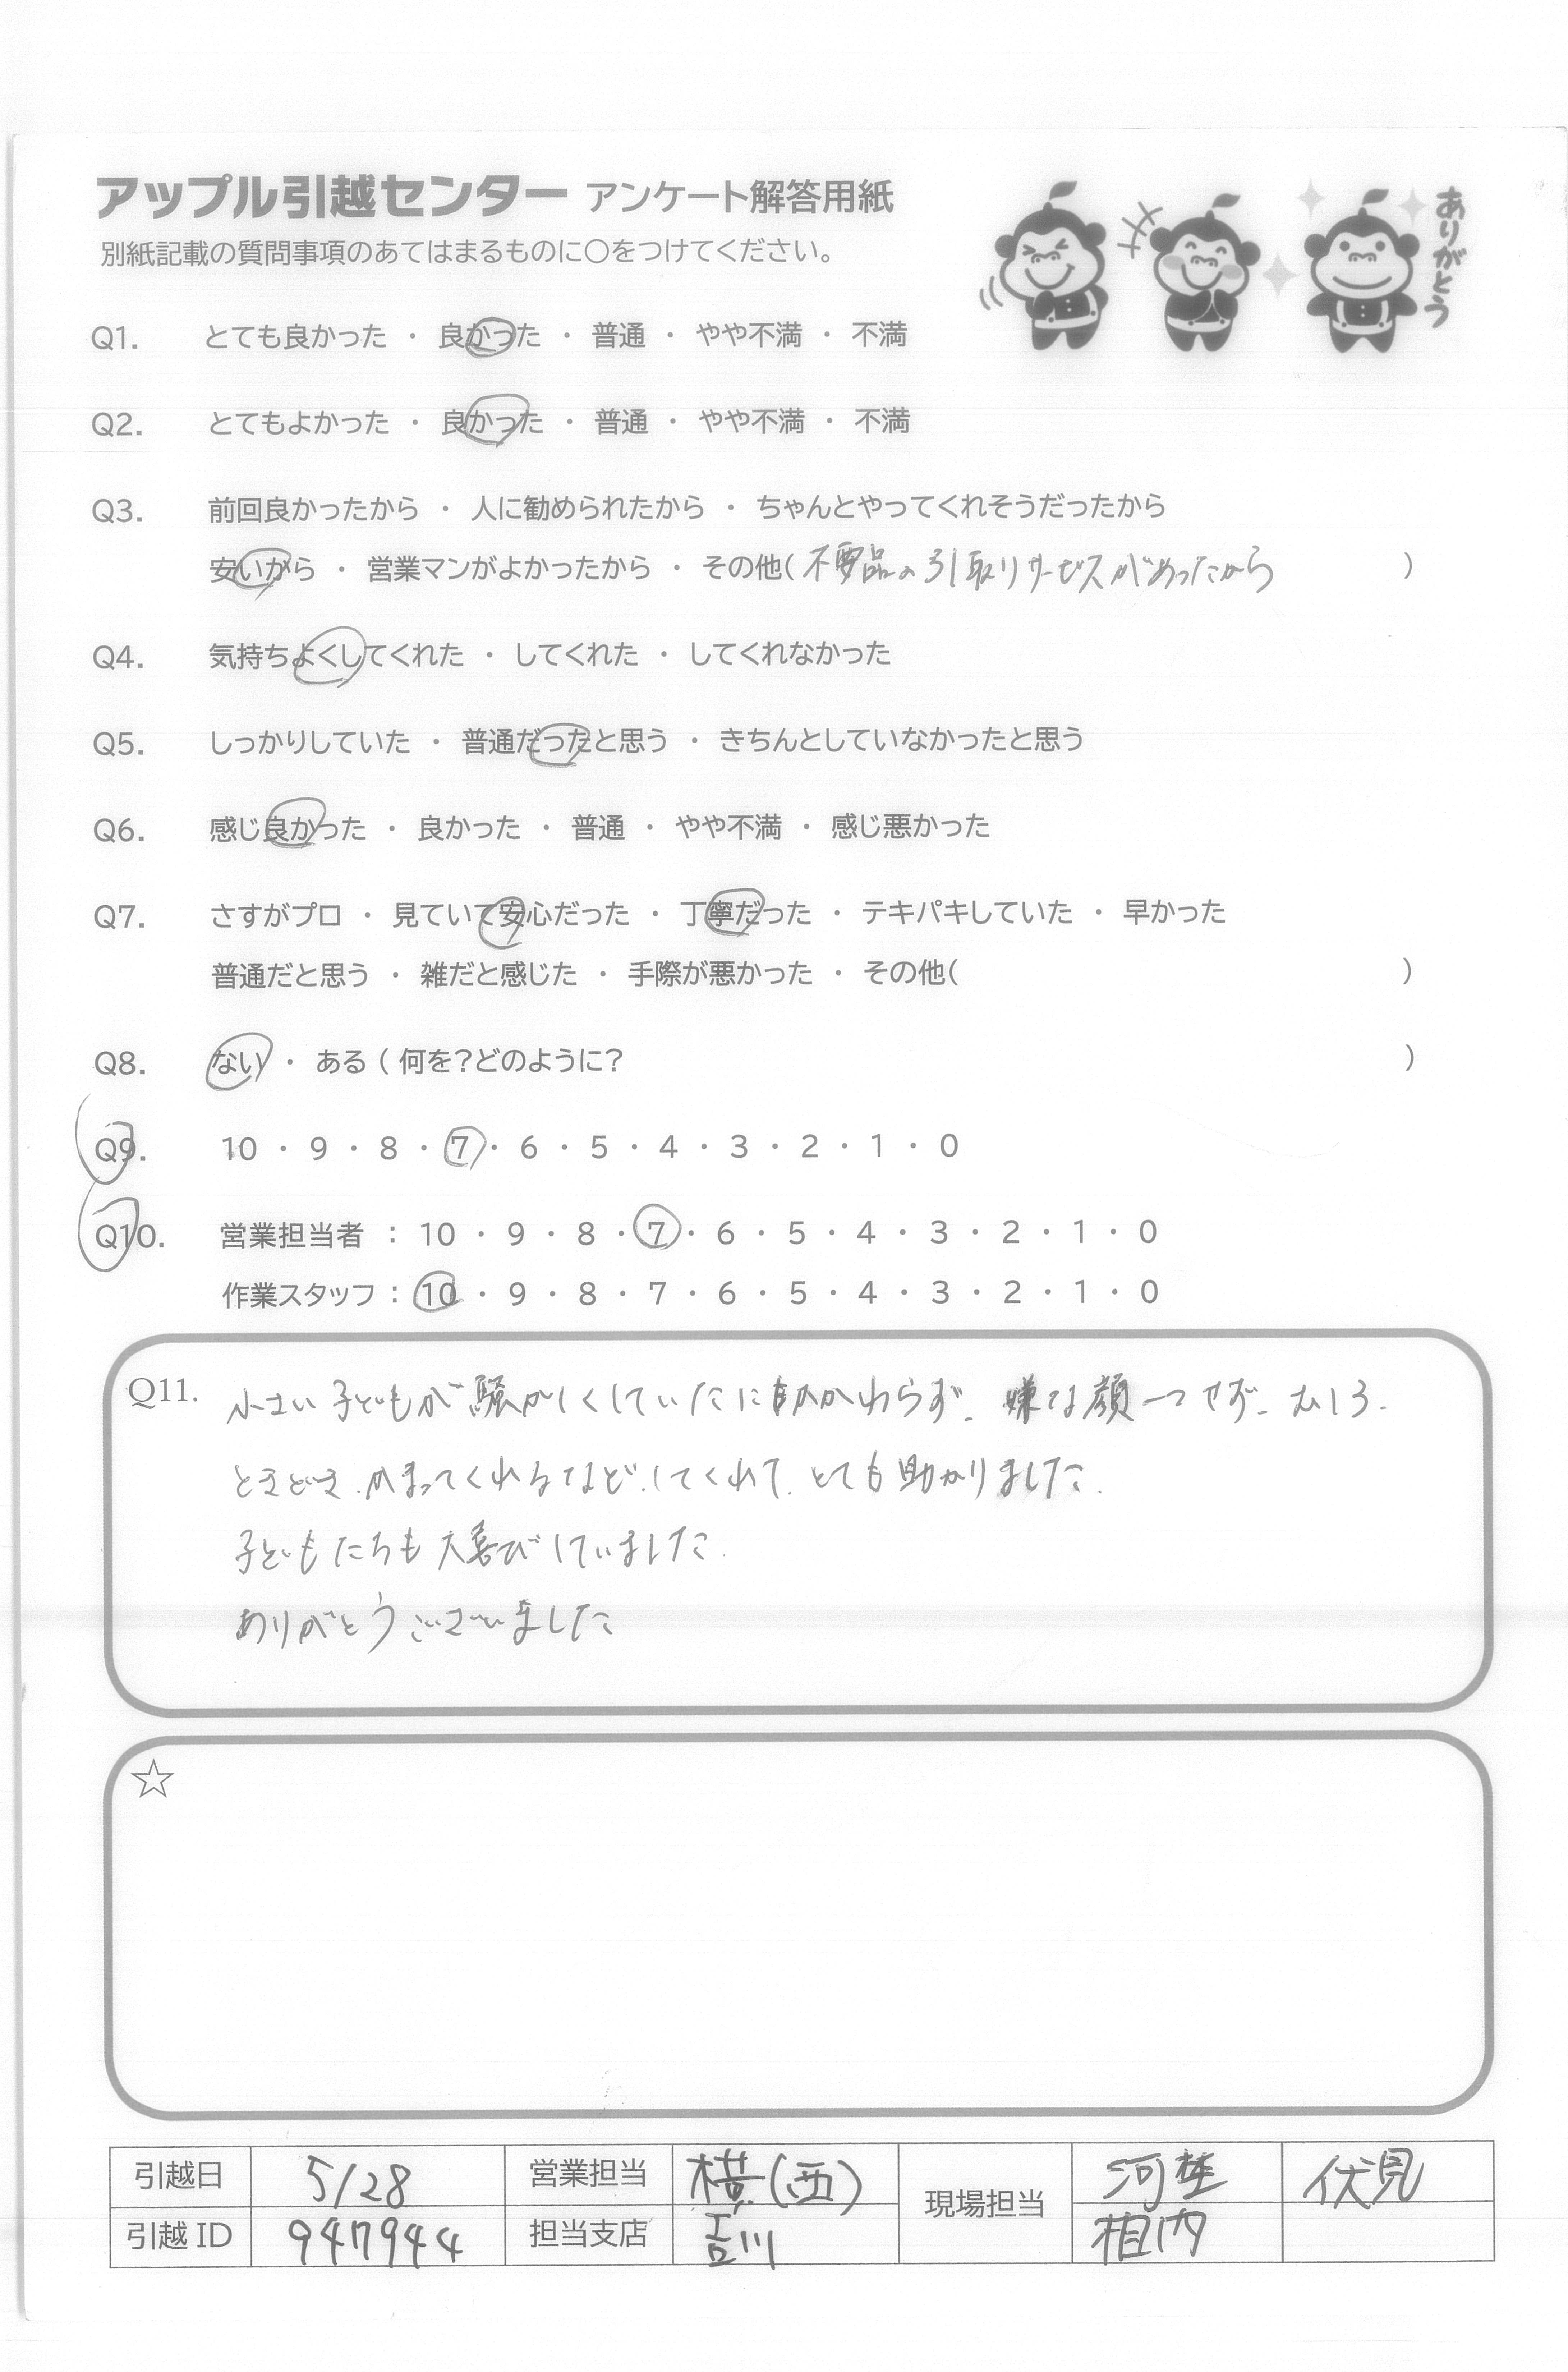 アップル引越センター アンケート解答用紙
別紙記載の質問事項のあてはまるものに〇をつけてください。
ありがとう
Q1. とても良かった ・ 良かった ・ 普通 ・ やや不満 ・ 不満
Q2. とてもよかった ・ 良かった ・ 普通 ・ やや不満 ・ 不満
Q3. 前回良かったから ・ 人に勧められたから ・ ちゃんとやってくれそうだったから
安いから ・ 営業マンがよかったから ・ その他( 不要品の引取りサービスがあったから )
Q4. 気持ちよくしてくれた ・ してくれた ・ してくれなかった
Q5. しっかりしていた ・ 普通だったと思う ・ きちんとしていなかったと思う
Q6. 感じ良かった ・ 良かった ・ 普通 ・ やや不満 ・ 感じ悪かった
Q7. さすがプロ ・ 見ていて安心だった ・ 丁寧だった ・ テキパキしていた ・ 早かった
普通だと思う ・ 雑だと感じた ・ 手際が悪かった ・ その他( )
Q8. ない ・ ある ( 何を?どのように? )
Q9. 10 ・ 9 ・ 8 ・ 7 ・ 6 ・ 5 ・ 4 ・ 3 ・ 2 ・ 1 ・ 0
Q10. 営業担当者 : 10 ・ 9 ・ 8 ・ 7 ・ 6 ・ 5 ・ 4 ・ 3 ・ 2 ・ 1 ・ 0
作業スタッフ : 10 ・ 9 ・ 8 ・ 7 ・ 6 ・ 5 ・ 4 ・ 3 ・ 2 ・ 1 ・ 0
Q11. 小さい子どもが騒がしくしていたにもかかわらず、嫌な顔一つせず、むしろ、
ときどき、かまってくれるなど、してくれて、とても助かりました。
子どもたちも大喜びしていました。
ありがとうございました
☆
引越日 5/28 営業担当 横(西) 現場担当 伏見
引越 ID 947944 担当支店 吉川 相内